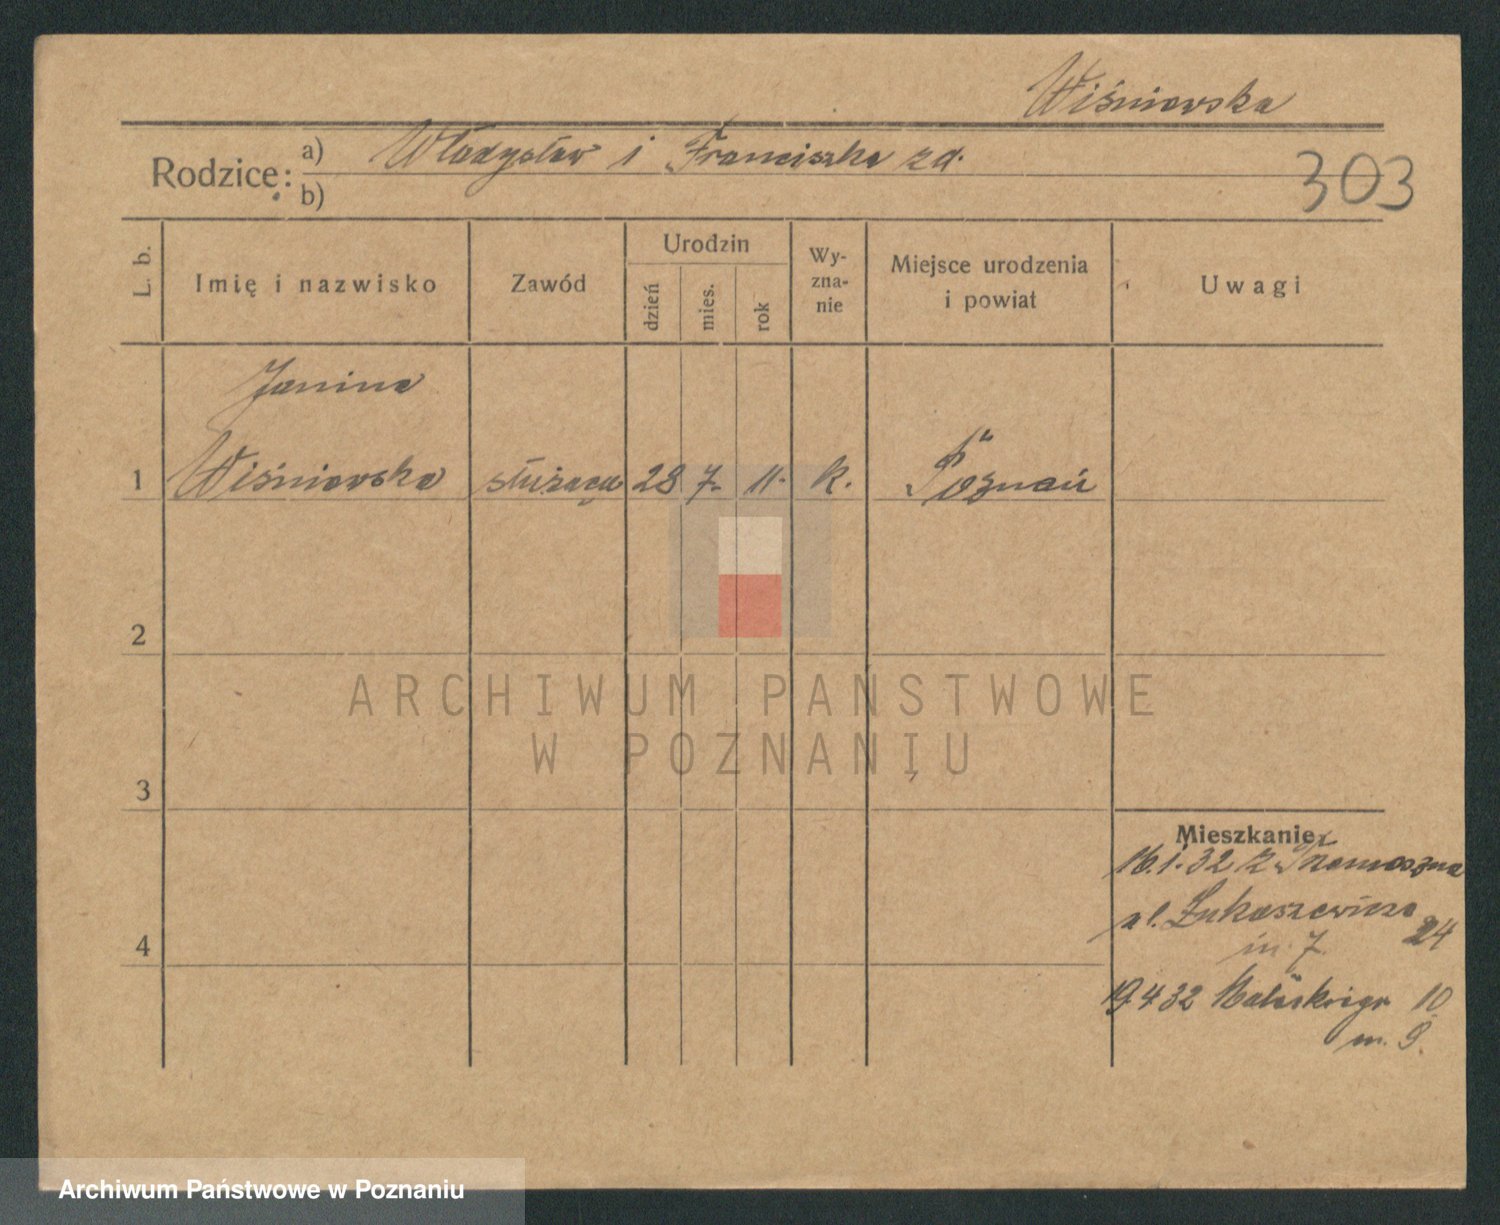 Wiśniewska
Rodzice: a) Władysław i Franciszka zd.
b)
303
L. b.
Imię i nazwisko
Zawód
Urodzin
dzień
mies.
rok
Wy-
zna-
nie
Miejsce urodzenia
i powiat
Uwagi
Janina
1 Wiśniewska służąca 28 7. 11. k. Poznań
2
3
4
Mieszkanie
16.1.32 z
ul. Łukaszewicza 24
m. 7
19.4.32 10
m. 9.
ARCHIWUM PAŃSTWOWE
W POZNANIU
Archiwum Państwowe w Poznaniu